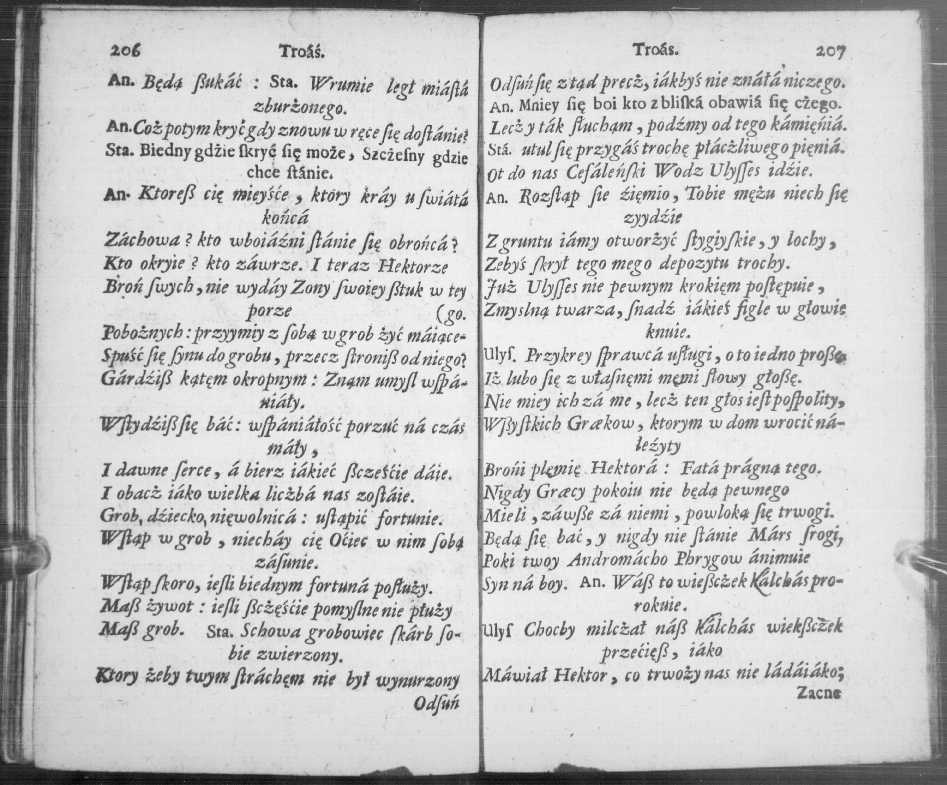 206 Troáś.
An. Będą ßukáć : Sta. Wrumie legł miástá
zburżonego.
An. Coż potym kryć gdy znowu w ręce się dostánie?
Sta. Biedny gdzie skryć się może, Szcżesny gdzie
chce stánie.
An. Ktoreß cię mieyśće, ktory kráy u swiátá
końcá
Záchowa? kto wboiáźni stánie się obrońcá?
Kto okryie? kto záwrze. I teraz Hektorze
Broń swych, nie wydáy Zony swoiey sztuk w tey
porze (go.
Pobożnych: przyymiy z sobą w grob żyć máiące-
Spuść się synu do grobu, przecz stroniß od niego?
Gárdźiß kątęm okropnym: Znąm umysł wspá-
niáły.
Wstydźiß się báć: wspániáłość porzuć ná czás
máły,
I dawne serce, á bierz iákieć ßcześćie dáie.
I obacż iáko wielka liczbá nas zostáie.
Grob, dźiecko, nięwolnicá: ustąpić fortunie.
Wstąp w grob, niecháy cię Oćiec w nim sobą
zásunie.
Wstąp skoro, iesli biednym fortuná posłuży.
Maß żywot: iesli ßcżęśćie pomyslne nie płuży
Maß grob. Sta. Schowa grobowiec skárb so-
bie zwierzony.
Ktory żeby twym stráchęm nie był wynurzony
Odsuń
Troás. 207
Odsuń się z tąd precż, iákbyś nie znáłá niczego.
An. Mniey się boi kto z bliská obawiá się cżego.
Lecż y ták słucham, podźmy od tego kámięniá.
Stá. utul się przygáś trochę płácżliwego pięniá.
Ot do nas Cefáleński Wodz Ulysses idźie.
An. Rozstąp sie źięmio, Tobie mężu niech się
zyydźie
Z gruntu iámy otworżyć stygiyskie, y lochy,
Zebyś skrył tego mego depozytu trochy.
Już Ulysses nie pewnym krokięm postępuie,
Zmysłną twarza, snadź iákieś figle w głowie
knuie.
Ulys. Przykrey sprawcá usługi, o to iedno proßę
Iż lubo się z własnęmi męmi słowy głoßę.
Nie miey ich zá me, lecż ten głos iest pospolity,
Wßystkich Grækow, ktorym w dom wrocić ná-
leżyty
Broni plęmię Hektorá: Fatá prágną tego.
Nigdy Græcy pokoiu nie będą pewnego
Mieli, záwße zá niemi, powloką się trwogi.
Będą się bać, y nigdy nie stánie Márs srogi,
Poki twoy Andromácho Phrygow ánimuie
Syn ná boy. An. Wáß to wießcżek Kalchás pro-
rokuie.
Ulys Choćby milcżał náß Kálchás wiekßcżek
przećięß, iáko
Máwiał Hektor, co trwoży nas nie ládáiáko;
Zacne